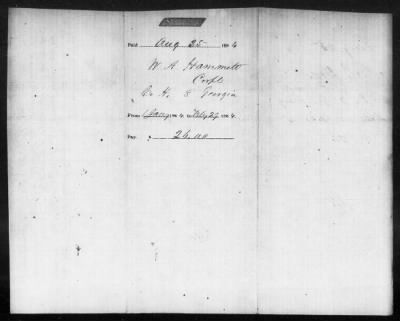 Paid Aug 25 186 4
W A Hammett
Corpl
Co H. 8 Georgia
From 186 4. to 186 4.
Pay, " 26.00